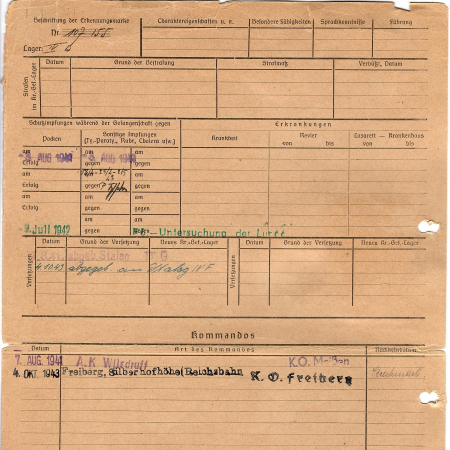 Beschriftung der Erkennungsmarke
Charaktereigenschaften u. s.
Besondere Fähigkeiten
Sprachkenntnisse
Führung
Nr. 107 155
Lager: IV B
Strafen im Kr.-Gef.-Lager
Datum
Grund der Bestrafung
Strafmaß
Verbüßt, Datum
Schutzimpfungen während der Gefangenschaft gegen
Erkrankungen
Pocken
Sonstige Impfungen
(Ty.-Paraty., Ruhr, Cholera usw.)
Krankheit
Revier
von bis
Lazarett – Krankenhaus
von bis
am
AUG 1941
am
AUG 1941
am
Erfolg
gegen
gegen
am
am
am
Erfolg
gegen
gegen
am
am
am
Erfolg
gegen
gegen
am
am
gegen
gegen
Juli 1942
Untersuchung der
Versetzungen
Datum
Grund der Versetzung
Neues Kr.-Gef.-Lager
Versetzungen
Datum
Grund der Versetzung
Neues Kr.-Gef.-Lager
abgeb. Stalag IV G
Stalag IV F
Kommandos
Datum
Art des Kommandos
Rückkehrdatum
7. AUG. 1941
A.K Wilsdruff
K.O. Meißen
4. OKT. 1943
Freiberg, Silberhofhöhe(Reichsbahn
K. O. Freiberg